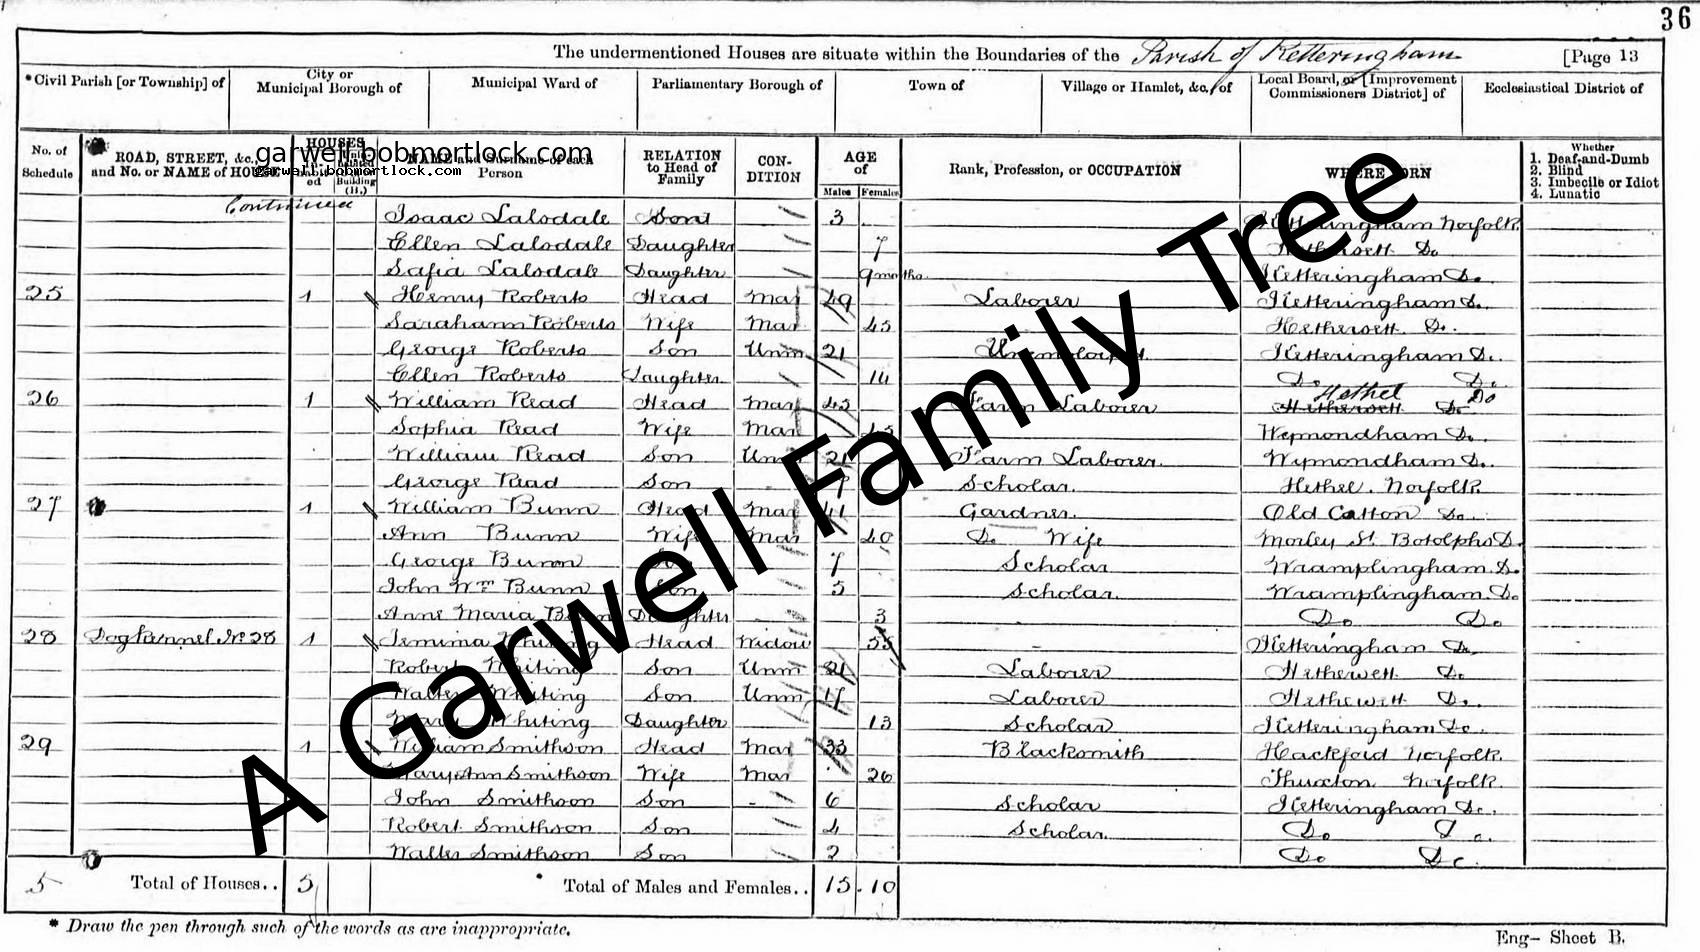 36
The undermentioned Houses are situate within the Boundaries of the Parish of Ketteringham [Page 13
*Civil Parish [or Township] of City or Municipal Borough of Municipal Ward of Parliamentary Borough of Town of Village or Hamlet, &c., of Local Board, or [Improvement Commissioners District] of Ecclesiastical District of
No. of Schedule ROAD, STREET, &c., and No. or NAME of HOUSE HOUSES NAME and Surname of each Person RELATION to Head of Family CON-DITION AGE of Males Females Rank, Profession, or OCCUPATION WHERE BORN Whether 1. Deaf-and-Dumb 2. Blind 3. Imbecile or Idiot 4. Lunatic
garwell.bobmortlock.com
garwell.bobmortlock.com
Continued
Isaac Lalsdale Son 3 Ketteringham Norfolk
Ellen Lalsdale Daughter 7 Hethersett Do
Safia Lalsdale Daughter 9 months Ketteringham Do.
25 1 Henry Roberts Head Mar 49 Laborer Ketteringham Do.
Sarahann Roberts Wife Mar 45 Hethersett Do.
George Roberts Son Unm 21 Unemployed Ketteringham Do.
Ellen Roberts Daughter 14 Do Do.
26 1 William Read Head Mar 45 Farm Laborer Hethel Do Hethersett Do
Sophia Read Wife Mar Wymondham Do.
William Read Son Unm 21 Farm Laborer. Wymondham Do.
George Read Son 9 Scholar. Hethel. Norfolk
27 1 William Bunn Head Mar 41 Gardner. Old Catton Do.
Ann Bunn Wife Mar 40 Do. Wife Morley St. Botolphs D.
George Bunn 7 Scholar Wramplingham Do.
John Wm Bunn Son 5 Scholar. Wramplingham Do
Anne Maria Bunn Daughter 3 Do Do
28 Dog Kennel No 28 1 Jemima Whiting Head Widow 55 Ketteringham Do
Robert Whiting Son Unm 21 Laborer Hethersett Do
Walter Whiting Son Unm 17 Laborer Hethersett Do.
Mary Whiting Daughter 13 Scholar Ketteringham Do.
29 1 William Smithson Head Mar 33 Blacksmith Hackford Norfolk
Mary Ann Smithson Wife Mar 26 Thuxton Norfolk.
John Smithson Son 6 Scholar Ketteringham Do.
Robert Smithson Son 4 Scholar. Do Do.
Walter Smithson Son 2 Do Do.
5 Total of Houses.. 5 Total of Males and Females.. 15 10
* Draw the pen through such of the words as are inappropriate.
Eng- Sheet B.
A Garwell Family Tree